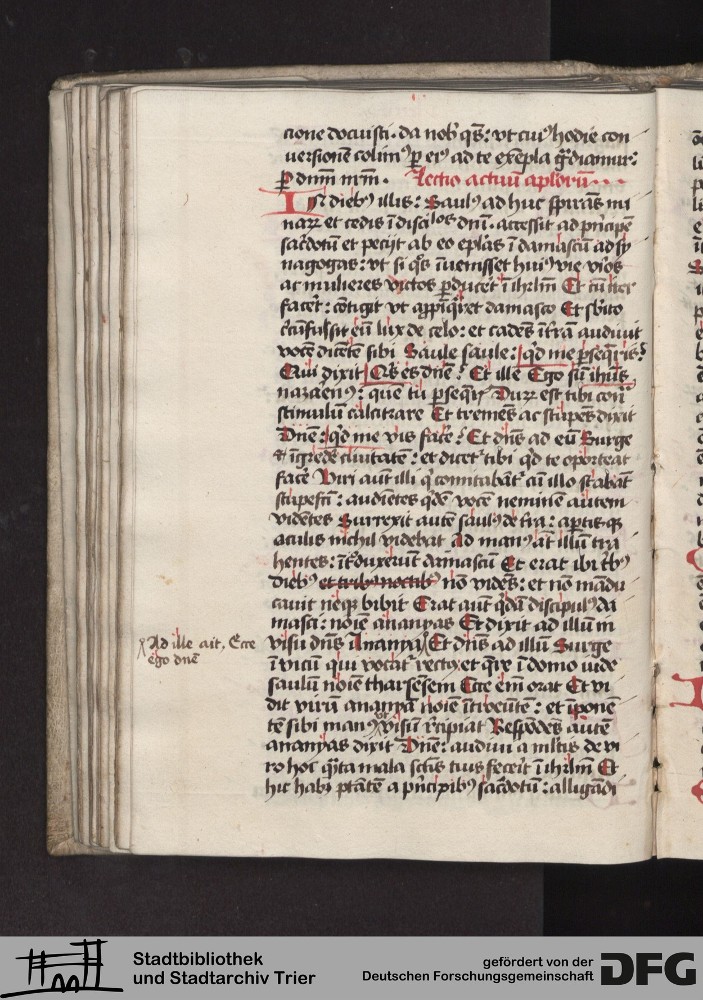 cione docuisti. da nob' qs: vt cui' hodie con
uersionē colim' p ei' ad te exēpla gdiamur:
p dnm nrm. Lectio actuū aplorū
In dieb' illis: Saul' ad huc spirās mi
narz et cedis ī disci los dnī. accessit ad pncipē
sacdotū et pecijt ab eo eplas ī damascū ad sy
nagogas: vt si qs īuenisset hui' vie viros
ac mulieres vīctos pducet ī ihrlm Et cū iter
facet: cōtigit vt appīqret damasco Et sbito
ccūfulsit eū lux de celo: et cadēs ī trā audiuit
vocē dicētē sibi Saule saule: qd me pseqris?
Qui dixit Qs es dnē? Et ille Ego sū ihūs
nazaren': quē tu pseqris Durz est tibi con
stimulū calcitrare Et tremēs ac stupēs dixit
Dnē: qd me vis facē? Et dns ad eū Surge
et īgrede ciuitatē: et dicet tibi qd te oporteat
facē Viri aut illi q comitabāt cū illo stabāt
stupefti: audiētes qdē vocē neminē autem
vidētes Surrexit autē saul' de tra: aptis qz
oculis nichil videbat Ad man' at illū tra
hentes: ītroduxerūt damascū Et erat ibi trib'
dieb' et trib' noctib' nō vidēs: et nō mādu
cauit neqz bibit Erat aut qdā discipul' da
masci: noiē ananyas Et dixit ad illū in
visu dns Ananya Et dns ad illū Surge
ī vicū qui vocat rect': et qre ī domo iude
saulū noiē tharsēsem Ecce em orat Et vi
dit virū ananyā noiē ītroeūtē: et īponē
tē sibi man' vt visū recipiat Respōdēs autē
ananyas dixit Dnē: audiui a mltis de vi
ro hoc qta mala sctis tuis fecēit ī ihrlm Et
hic habz ptātē a pncipib' sacdotū: alligādi
Ad ille ait. Ecce
ego dnē
Stadtbibliothek
und Stadtarchiv Trier
gefördert von der
Deutschen Forschungsgemeinschaft
DFG